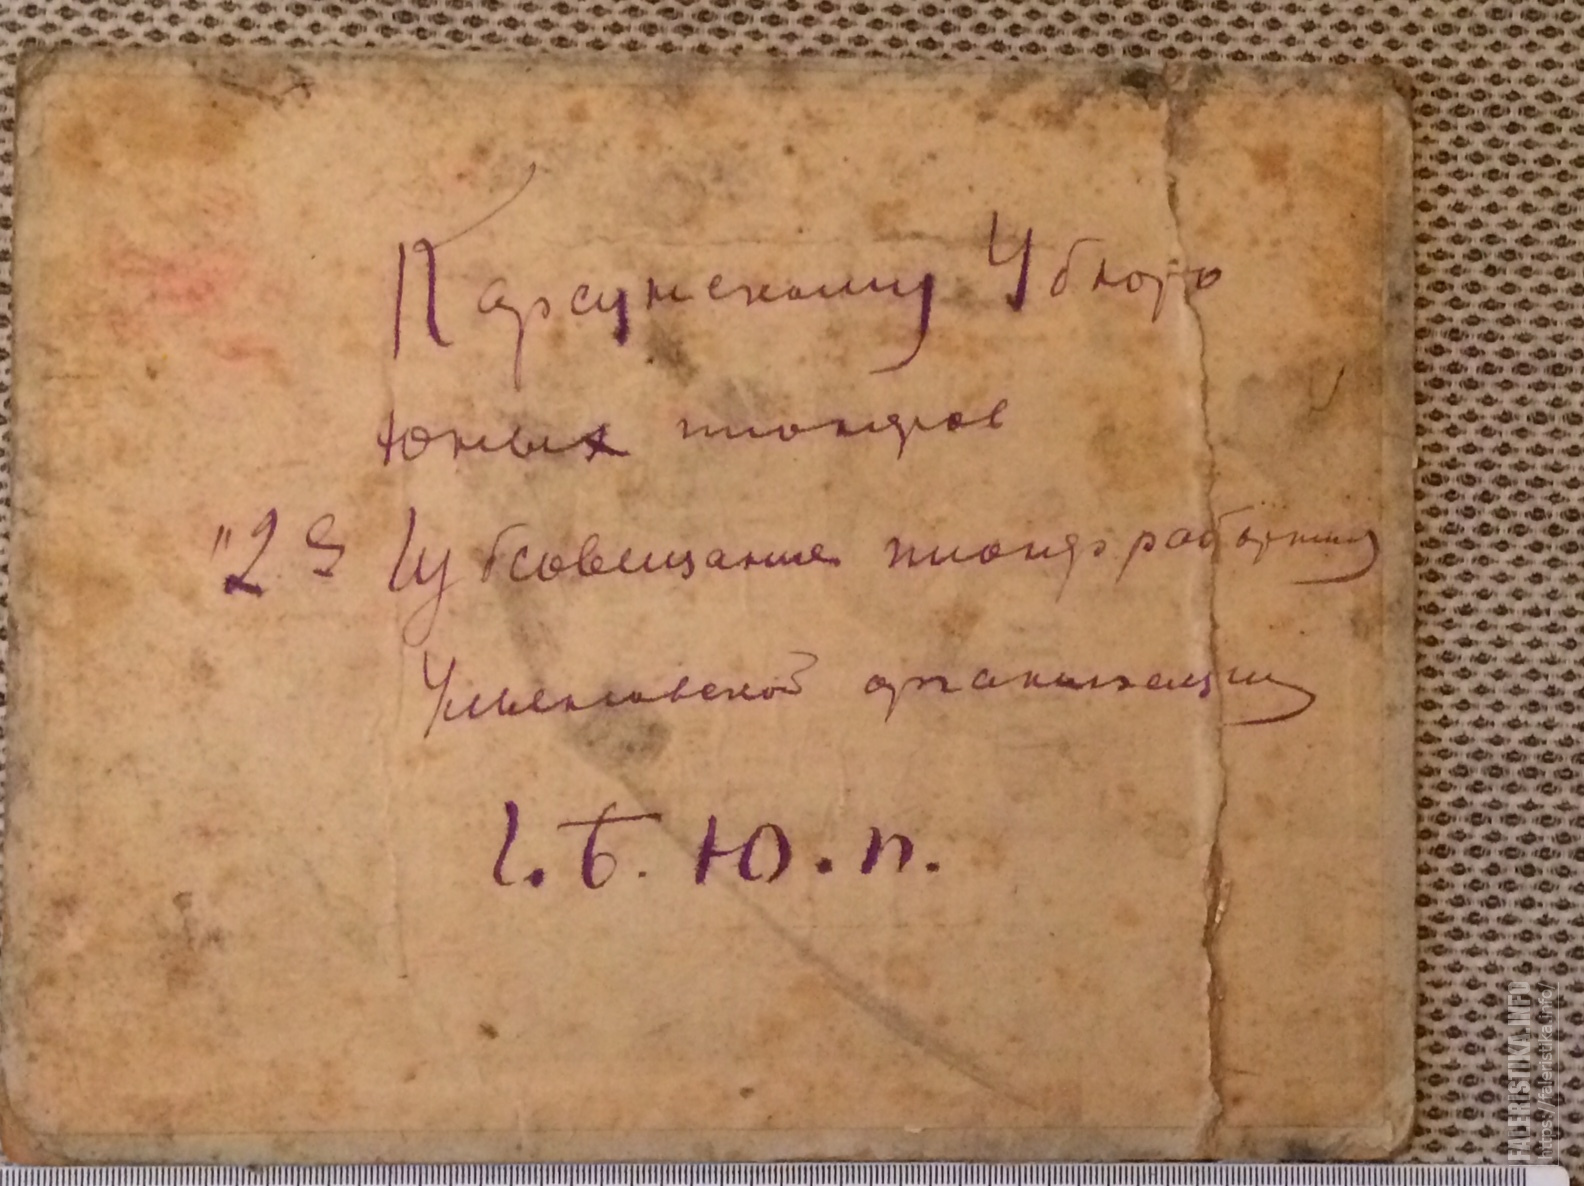 Карсунскому Убюро
юных пионеров
"2 е Губсовещание пионерработник
Ульяновской организации
Г. Б. Ю. П.
FALERISTIKA.INFO
https://faleristika.info/